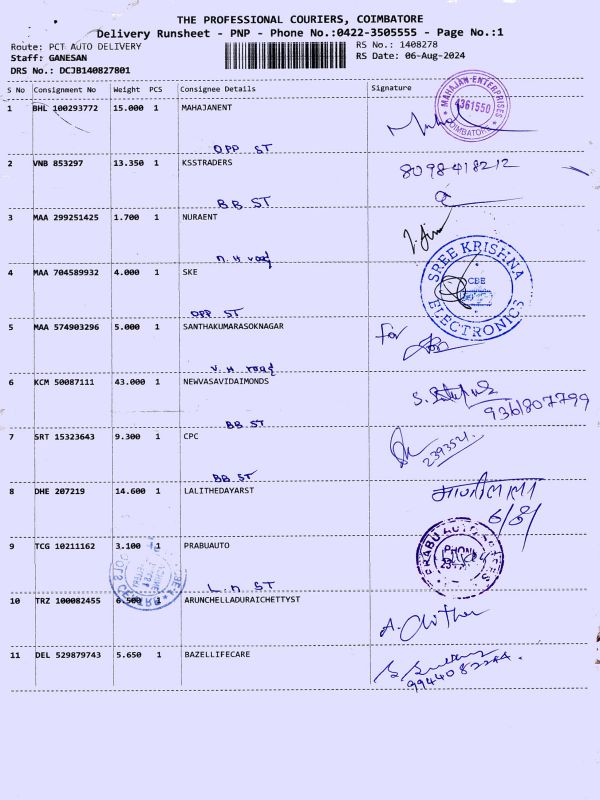 THE PROFESSIONAL COURIERS, COIMBATORE
Delivery Runsheet - PNP - Phone No.:0422-3505555 - Page No.:1
Route: PCT AUTO DELIVERY RS No.: 1408278
Staff: GANESAN RS Date: 06-Aug-2024
DRS No.: DCJB140827801
S No Consignment No Weight PCS Consignee Details Signature
1 BHL 100293772 15.000 1 MAHAJANENT
MAHAJAN ENTERPRISES 4361550 COIMBATORE
OPP ST
2 VNB 853297 13.350 1 KSSTRADERS 8098418212
BB ST
3 MAA 299251425 1.700 1 NURAENT
N.H road
4 MAA 704589932 4.000 1 SKE
SREE KRISHNA CBE ELECTRONICS
OPP ST
5 MAA 574903296 5.000 1 SANTHAKUMARASOKNAGAR For
V.H road
6 KCM 50087111 43.000 1 NEWVASAVIDAIMONDS
9361807799
BB ST
7 SRT 15323643 9.300 1 CPC
2393521
BB ST
8 DHE 207219 14.600 1 LALITHEDAYARST
6/8/
9 TCG 10211162 3.100 1 PRABUAUTO
PRABU AUTO PHONE
L.N ST
10 TRZ 100082455 6.500 1 ARUNCHELLADURAICHETTYST
11 DEL 529879743 5.650 1 BAZELLIFECARE
9944082244